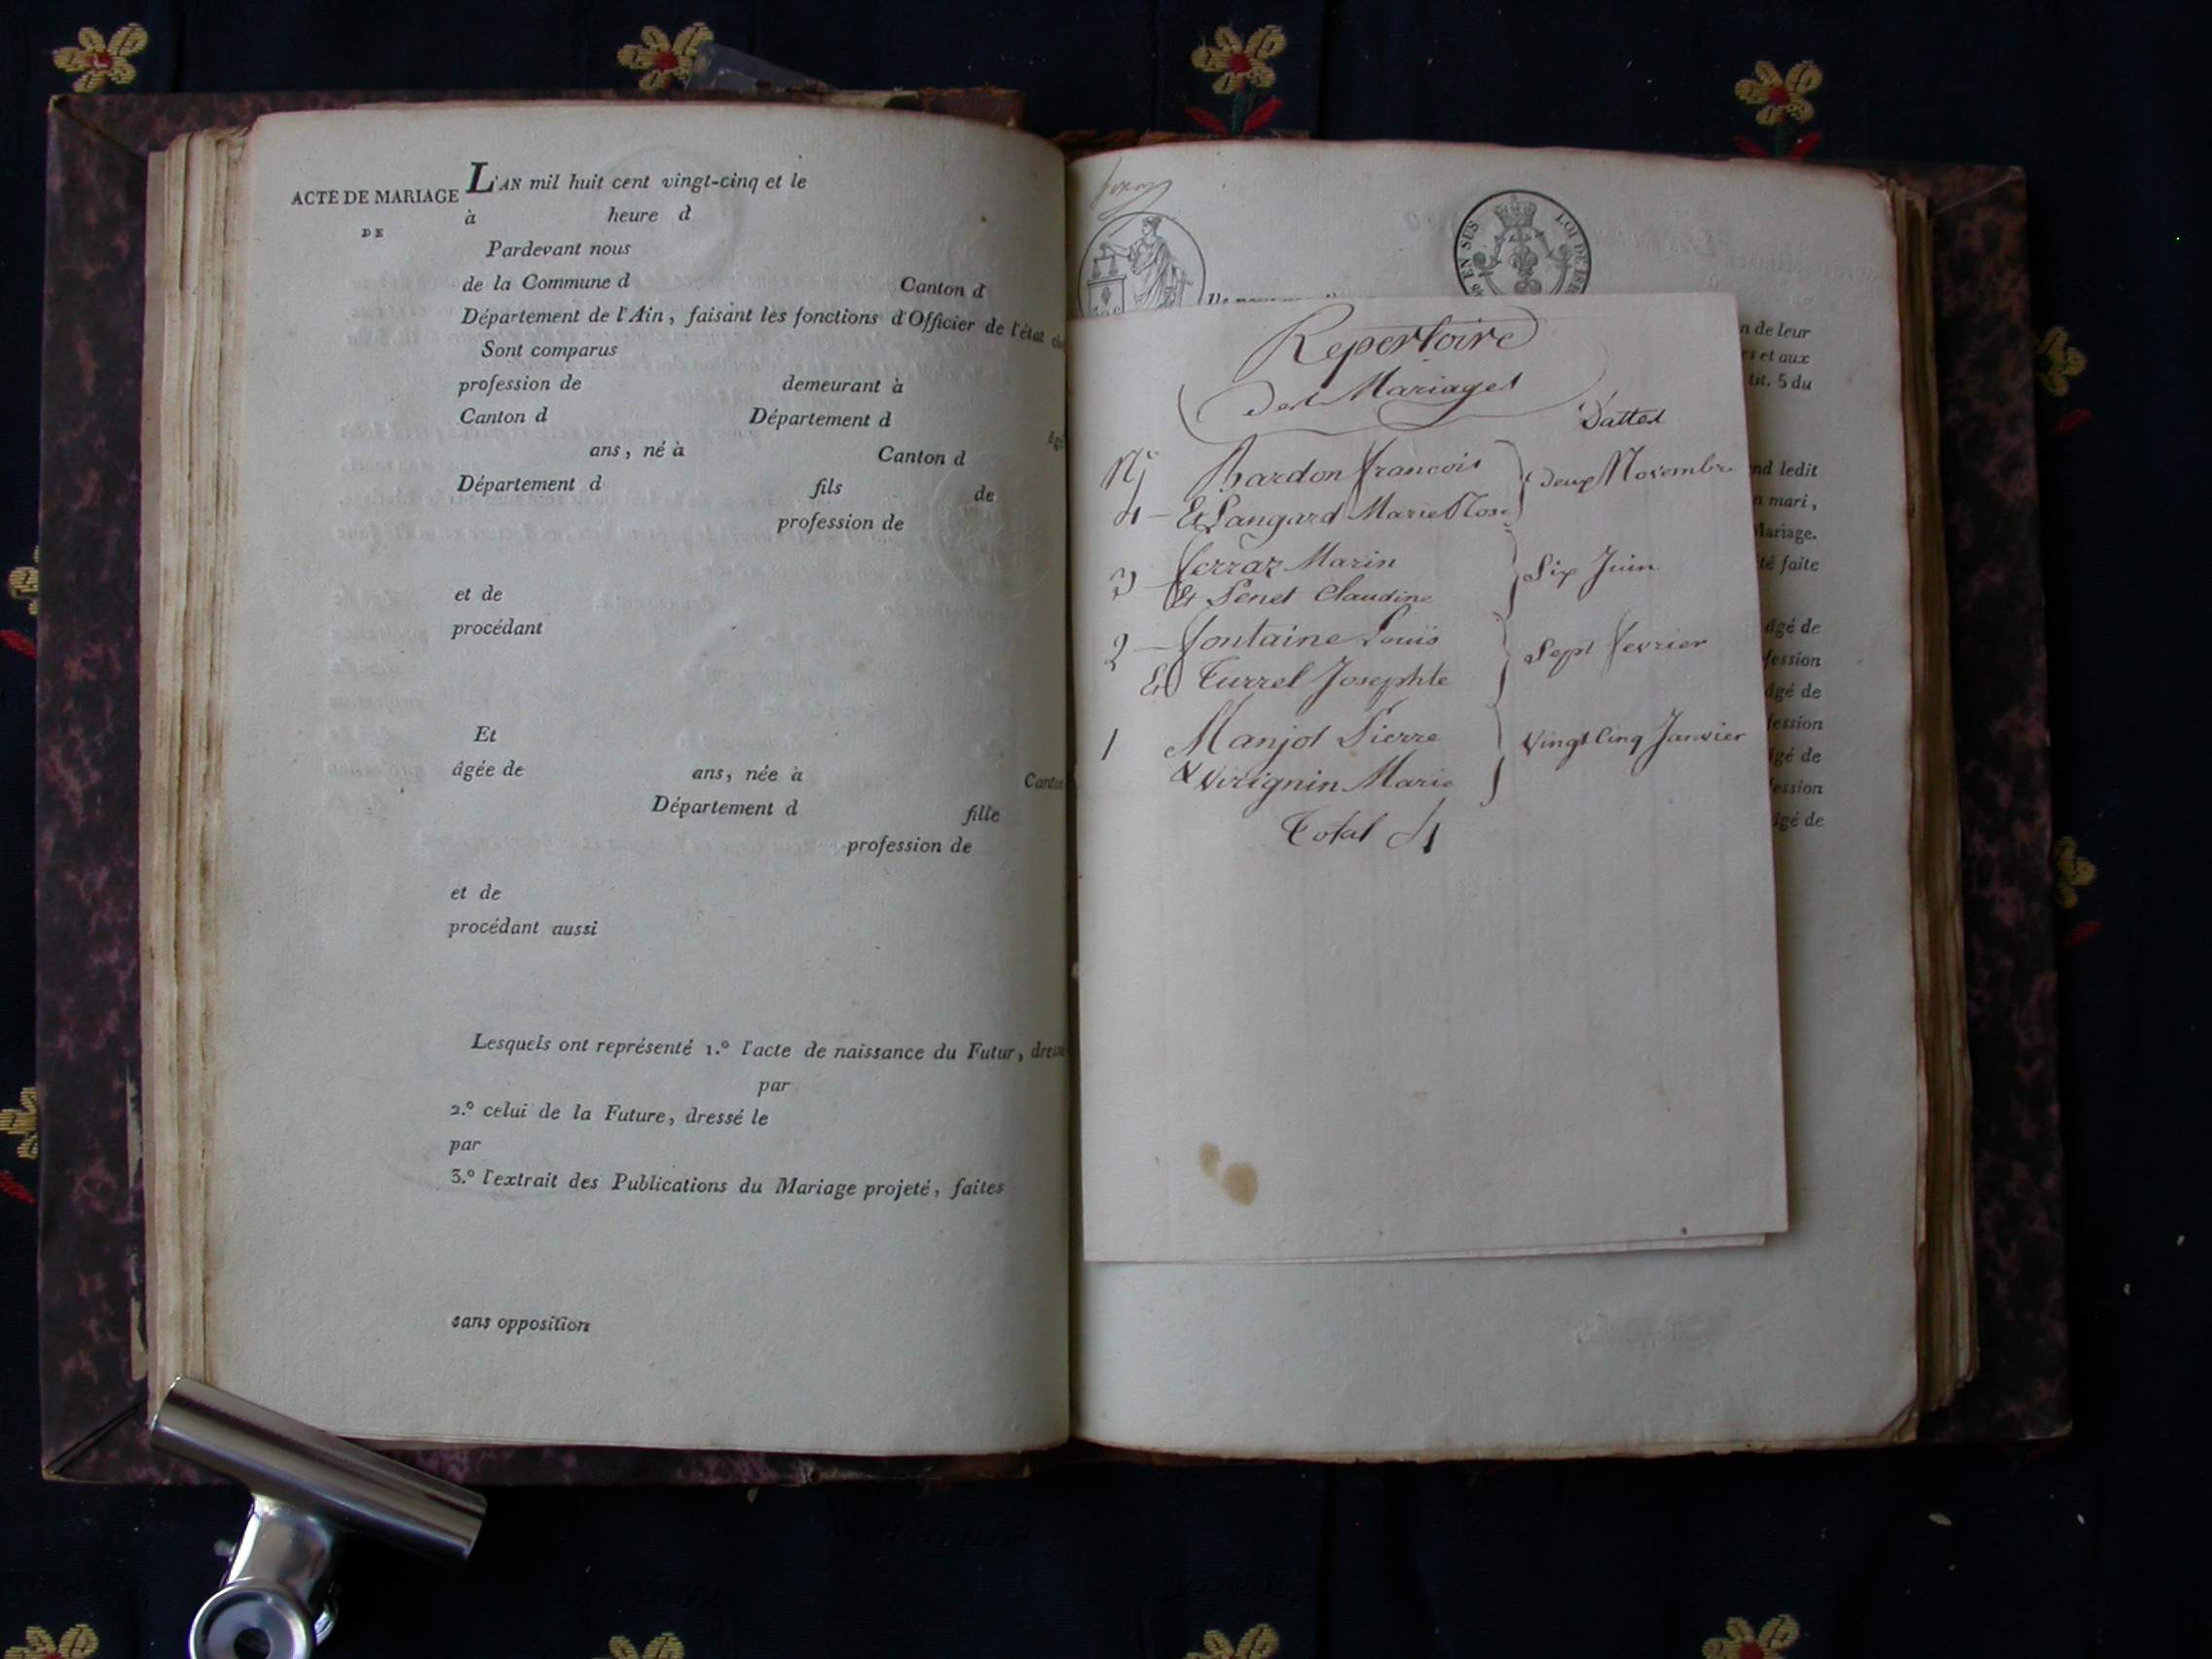 ACTE DE MARIAGE
DE
L'AN mil huit cent vingt-cinq et le
à heure d
Pardevant nous
de la Commune d Canton d
Département de l'Ain, faisant les fonctions d'Officier de l'état
Sont comparus
profession de demeurant à
Canton d Département d
ans, né à Canton d
Département d fils de
profession de
et de
procédant
Et
âgée de ans, née à Canton
Département d fille
profession de
et de
procédant aussi
Lesquels ont représenté 1.º l'acte de naissance du Futur, dressé
par
2.º celui de la Future, dressé le
par
3.º l'extrait des Publications du Mariage projeté, faites
sans opposition
EN SUS LOI DE
Repertoire
des Mariages
Dattes
Bardon francois deux Novembre
4 - Et Langard Marie Rose
3 ferraz Marin Six Juin
Et Penet Claudine
2 - fontaine Louis Sept fevrier
Et Turrel Josephte
1 Manjot Pierre Vingt Cinq Janvier
& Virignin Marie
Total 4
n de leur
es et aux
tit. 5 du
nd ledit
n mari,
Mariage.
té faite
âgé de
fession
âgé de
fession
âgé de
fession
âgé de